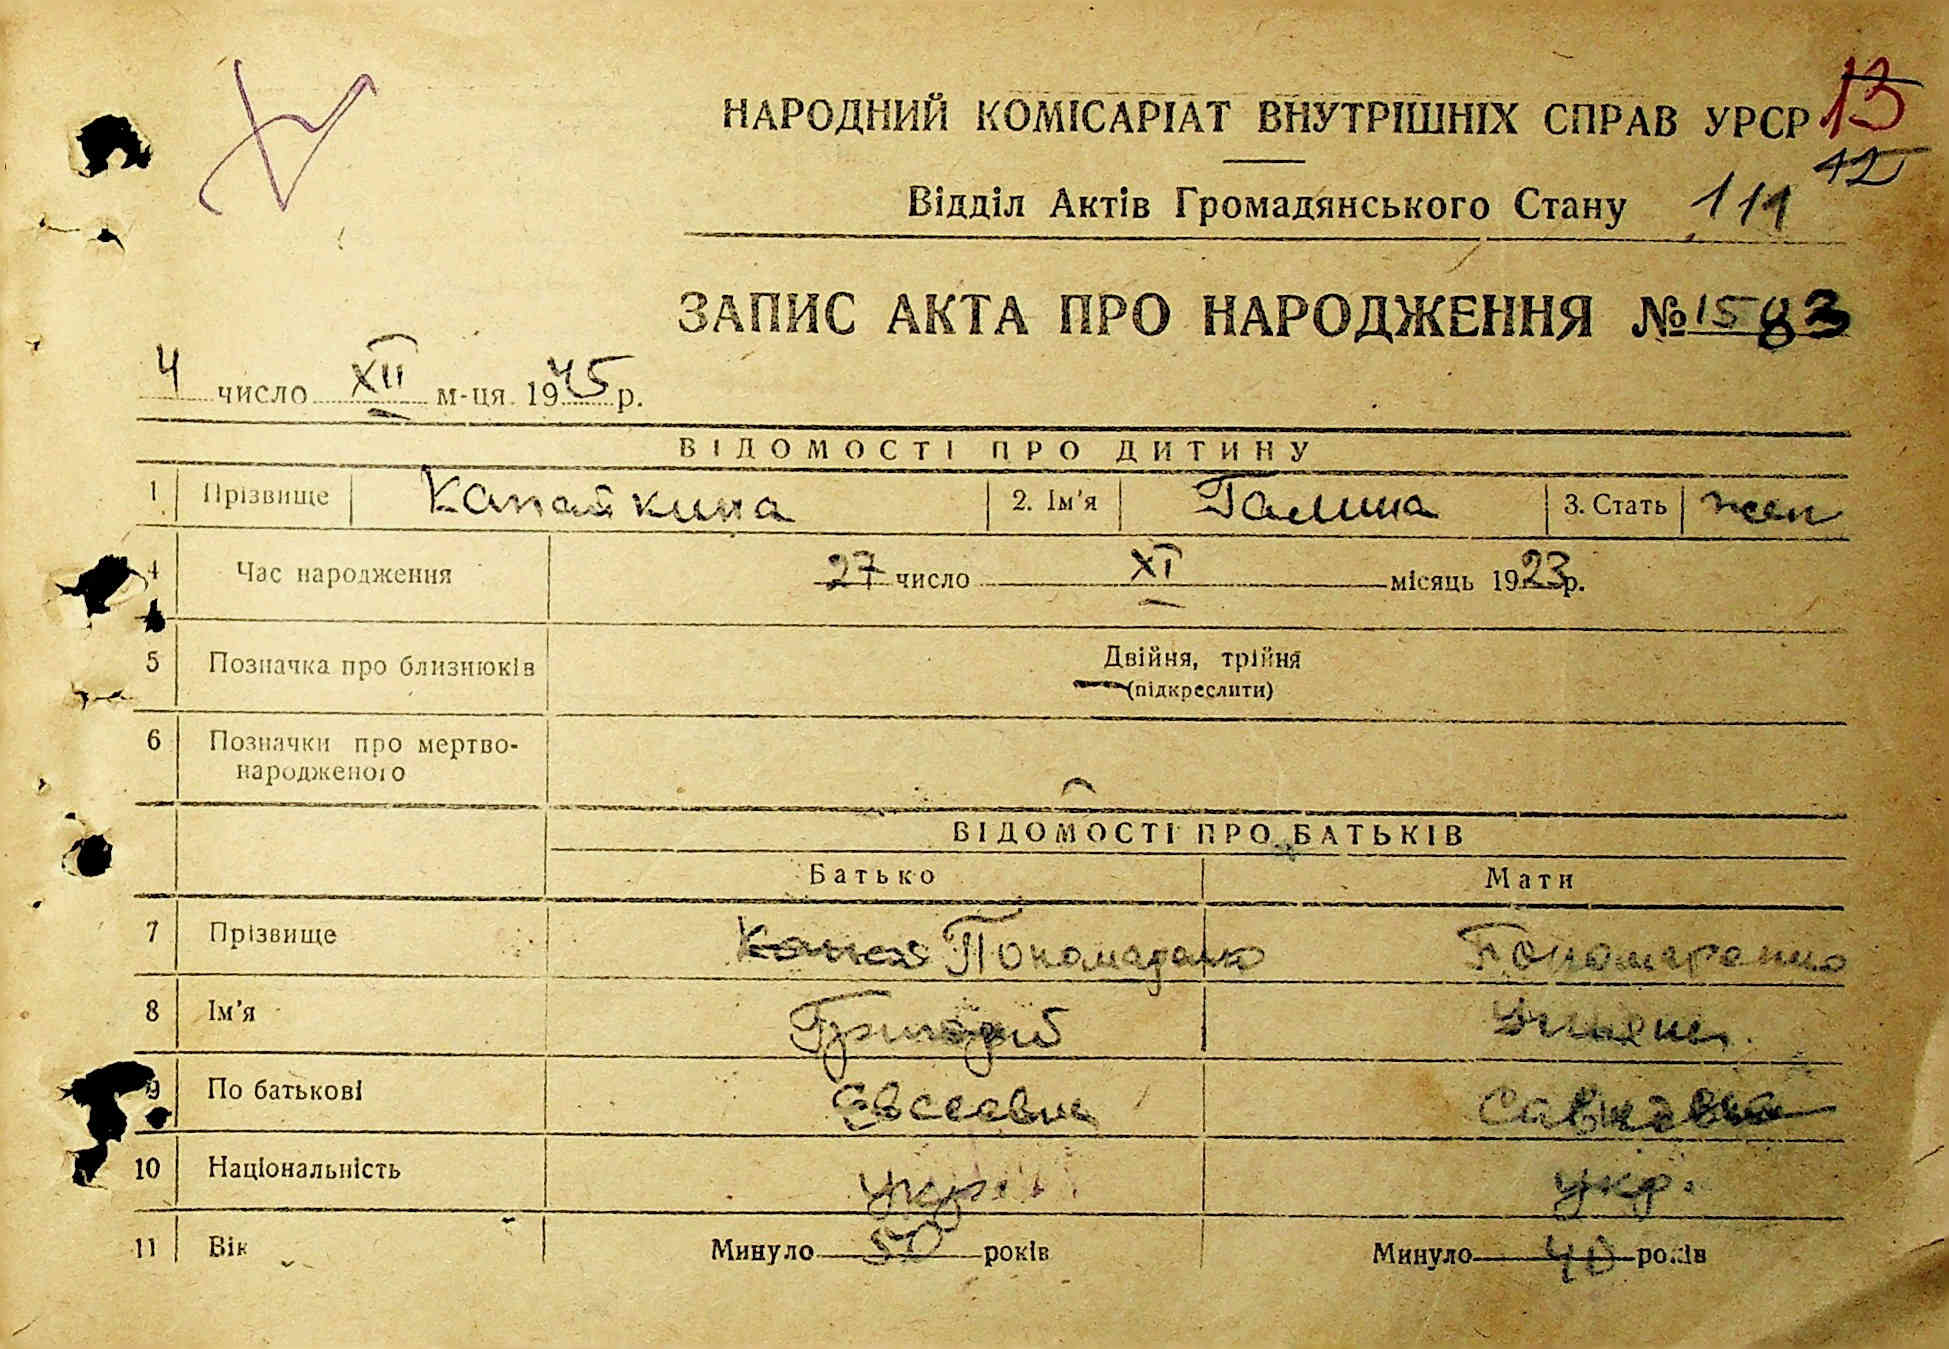 НАРОДНИЙ КОМІСАРІАТ ВНУТРІШНІХ СПРАВ УРСР 13
12
Відділ Актів Громадянського Стану 111
ЗАПИС АКТА ПРО НАРОДЖЕННЯ № 1583
4 число XII м-ця 1945 р.
ВІДОМОСТІ ПРО ДИТИНУ
1 Прізвище Капайкина 2. Ім'я Галина 3. Стать жен
4 Час народження 27 число XI місяць 1923 р.
5 Позначка про близнюків Двійня, трійня
(підкреслити)
6 Позначки про мертво-
народженого
ВІДОМОСТІ ПРО БАТЬКІВ
Батько Мати
7 Прізвище Пономаренко Пономаренко
8 Ім'я Григорий
9 По батькові Евсеевич Савидавна
10 Національність укр. укр.
11 Вік Минуло 50 років Минуло 40 років